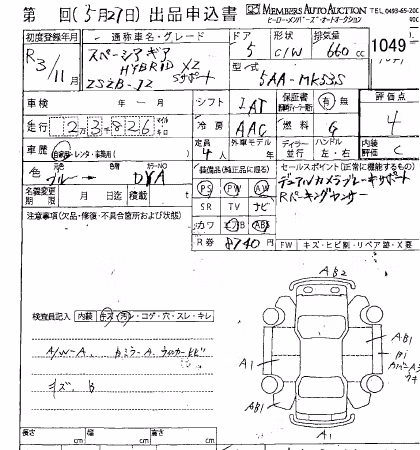 第 回(5月27日)出品申込書 MEMBERS AUTO AUCTION TEL
ヒーローメンバーズ・オートオークション
初度登録年月 通称車名・グレード ドア 形状 排気量
R3/11月 スペーシア ギア HYBRID XZ 5 C/W 660cc 1049
ZSZB-J2 Sサポート 型式 5AA-MK53S
車検 年 月 シフト IAT 保証書 有・無 評価点
走行 23826 冷房 AAC 燃料 G 4
車歴 自家用・レンタ・事業用( ) 定員 4人 外車モデル 年 ディーラー 並行 ハンドル 左・右 内装評価 C
色 ブルー 色替 カラーNO DYA 装備品(純正品に限る) セールスポイント(正常に機能するもの)
PS PW AW デュアルカメラブレーキサポート
名義変更期限 月 日迄 積載 t SR TV ナビ Rパーキングセンサー
注意事項(欠品・修復・不具合箇所および状態) カワ エアB ABS
R券 8740円 FW キズ・ヒビ割・リペア跡・X要
AB2
検査員記入 内装 キズ・汚レ・コゲ・穴・スレ・キレ
A/W-A. Bミラー-A. ウィンカーヒビ A1 AB1
キズ、B AB1
A1
長さ cm 幅 cm 高さ cm